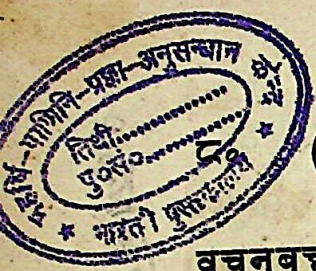 महर्षि-पाणिनि-प्रज्ञा-अनुसन्धान केन्द्र
तिथी..................
पु०सं०..................
भारती पुस्तकालय
वचनबच